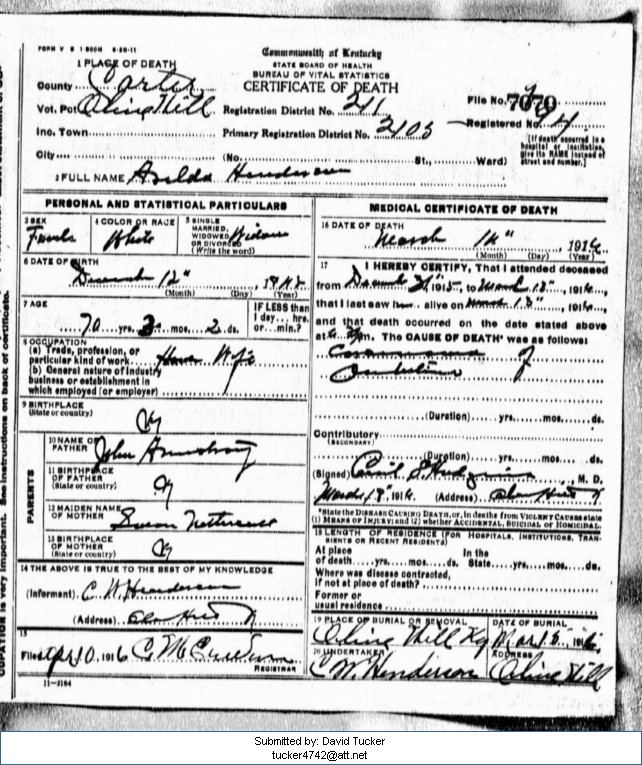 FORM V S 1 500M 6-20-11
Commonwealth of Kentucky
STATE BOARD OF HEALTH
BUREAU OF VITAL STATISTICS
CERTIFICATE OF DEATH
1 PLACE OF DEATH
County Carter
Vot. Pct. Olive Hill
Inc. Town
City
Registration District No. 211
Primary Registration District No. 2105
(No. St., Ward)
File No. 7070
Registered No. 94
(If death occurred in a hospital or institution, give its NAME instead of street and number.)
2 FULL NAME Henderson
PERSONAL AND STATISTICAL PARTICULARS
3 SEX Female
4 COLOR OR RACE White
5 SINGLE MARRIED, WIDOWED OR DIVORCED (Write the word) Widow
6 DATE OF BIRTH
December 12"
(Month) (Day) (Year)
7 AGE
70 yrs. 3 mos. 2 ds.
IF LESS than 1 day... hrs. or... min.?
8 OCCUPATION
(a) Trade, profession, or particular kind of work House Wife
(b) General nature of industry business or establishment in which employed (or employer)
9 BIRTHPLACE
(State or country) Ky
PARENTS
10 NAME OF FATHER John Armstrong
11 BIRTHPLACE OF FATHER (State or country) Ky
12 MAIDEN NAME OF MOTHER Susan
13 BIRTHPLACE OF MOTHER (State or country) Ky
14 THE ABOVE IS TRUE TO THE BEST OF MY KNOWLEDGE
(Informant) C W Henderson
(Address) Olive Hill Ky
15
Filed Apr 10, 1916 C. M.
REGISTRAR
11-3184
MEDICAL CERTIFICATE OF DEATH
16 DATE OF DEATH
March 14", 1916
(Month) (Day) (Year)
17 I HEREBY CERTIFY, That I attended deceased
from 1915, to March 13", 1916,
that I last saw her alive on March 13", 1916,
and that death occurred on the date stated above
at m. The CAUSE OF DEATH* was as follows:
Carcinoma of
(Duration) yrs. mos. ds.
Contributory
(SECONDARY)
(Duration) yrs. mos. ds.
(Signed) M. D.
March 18, 1916 (Address) Olive Hill Ky
*State the DISEASE CAUSING DEATH, or, in deaths from VIOLENT CAUSES state
(1) MEANS OF INJURY; and (2) whether ACCIDENTAL, SUICIDAL or HOMICIDAL.
18 LENGTH OF RESIDENCE (FOR HOSPITALS, INSTITUTIONS, TRANSIENTS OR RECENT RESIDENTS)
At place of death yrs. mos. ds. In the State yrs. mos. ds.
Where was disease contracted, if not at place of death?
Former or usual residence
19 PLACE OF BURIAL OR REMOVAL Olive Hill Ky
DATE OF BURIAL Mar 15, 1916
20 UNDERTAKER C W. Henderson
ADDRESS Olive Hill
Submitted by: David Tucker
tucker4742@att.net